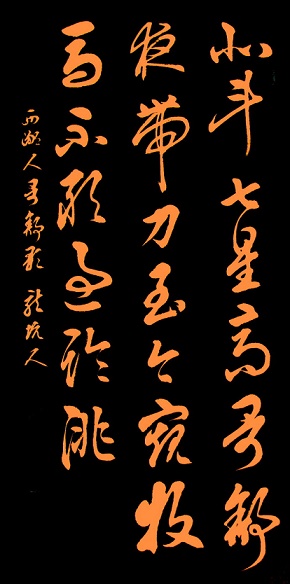 北斗七星高哥舒
夜带刀至今窥牧
马不敢过临洮
西鄙人哥舒歌 龙坑人